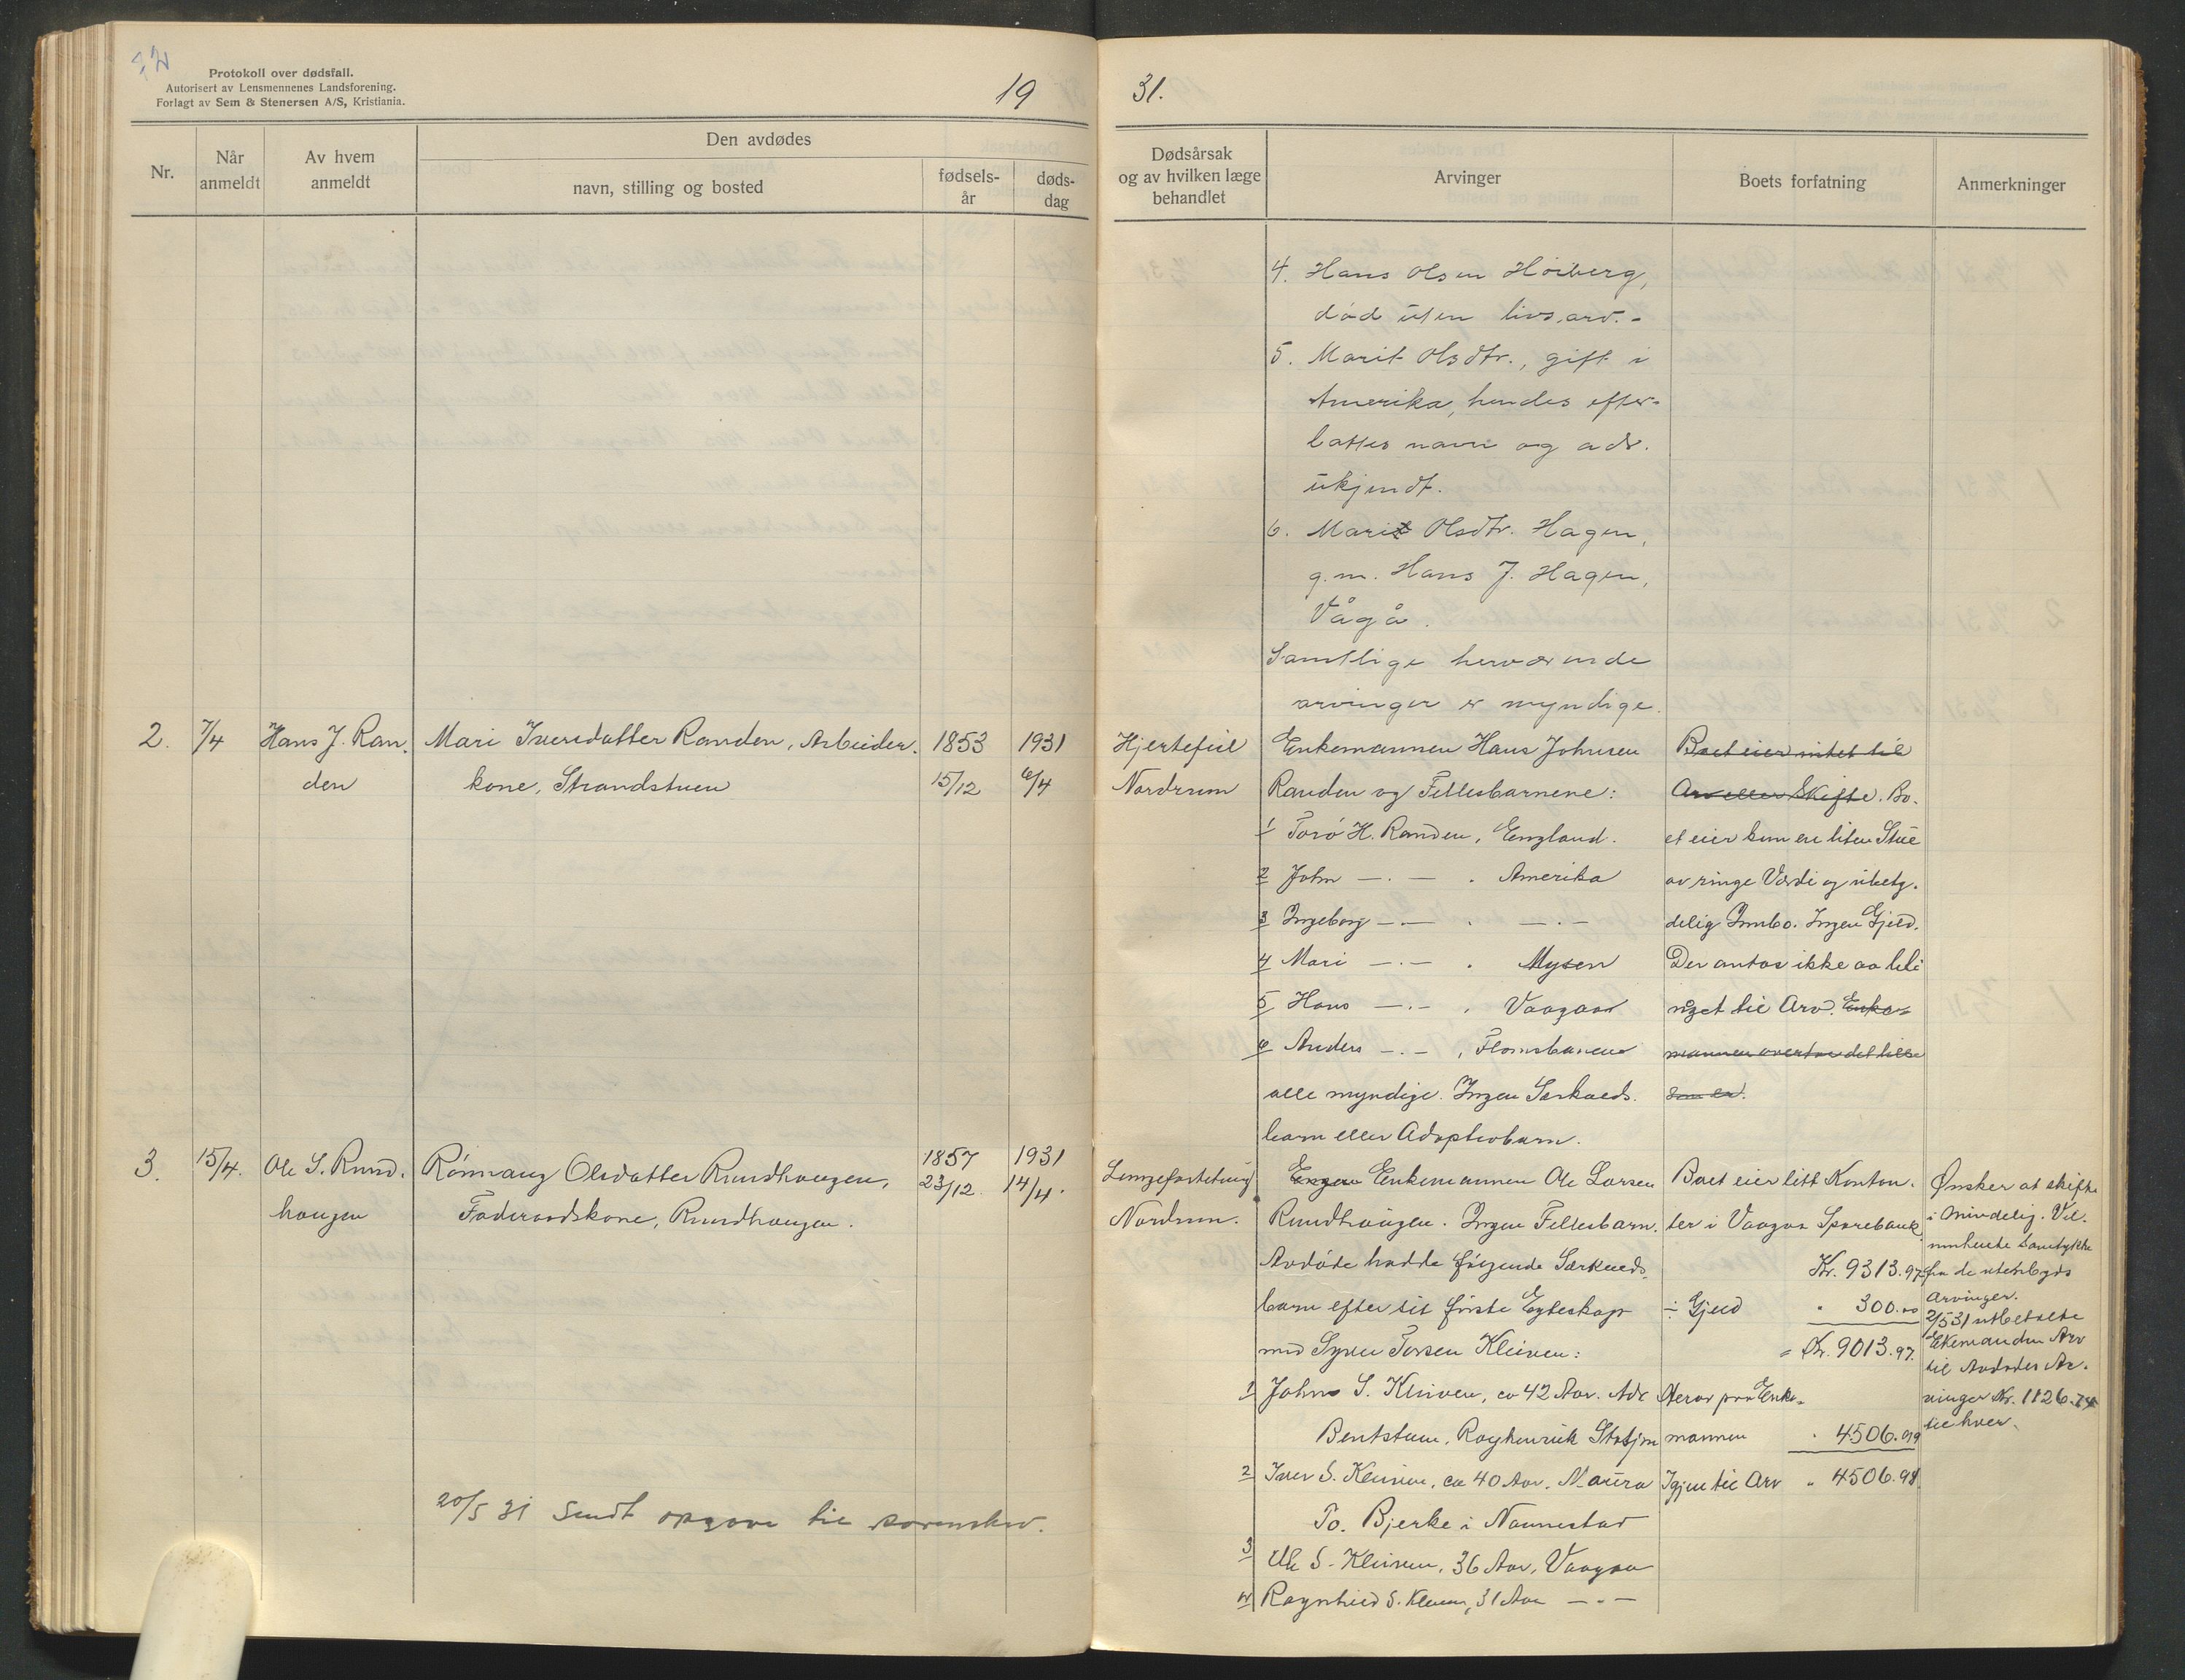 Protokoll over dødsfall.
Autorisert av Lensmennenes Landsforening.
Forlagt av Sem & Stenersen A/S, Kristiania.
19
31.
Nr.
Når anmeldt
Av hvem anmeldt
Den avdødes
navn, stilling og bosted
fødsels-år
døds-dag
Dødsårsak og av hvilken læge behandlet
Arvinger
Boets forfatning
Anmerkninger
4. Hans Olsen Høiberg,
død uten livsarv.-
5. Marit Olsdtr., gift i
Amerika, hendes efter-
lattes navn og adr.
ukjendt.
6. Mari Olsdtr. Hagen,
g.m. Hans J. Hagen,
Vågå.
Samtlige herværende
arvinger er myndige.
2.
7/4
Hans J. Ran-
den
Mari Iversdatter Randen, Arbeider-
kone, Strandstuen
1853
15/12
1931
6/4
Hjertefeil
Nordrum
Enkemannen Hans Johnsen
Randen og Fellesbarnene:
1 Torø H. Randen, England.
2 John -.- . Amerika
3 Ingeborg -.- . -.-
4 Mari -.- . Mysen
5 Hans -.- . Vaagaa
6 Anders -.- , Flomsbanen
alle myndige. Ingen Særkulds-
barn eller Adoptivbarn.
Boet eier intet til
Arv eller Skifte. Bo-
et eier kun en liten Stue
av ringe Værdi og ubety-
delig Innbo. Ingen Gjeld.
Der antas ikke aa bli
noget til Arv. Enke-
mannen overtar det lille
som er.
3.
15/4.
Ole S. Rund-
haugen
Rønnaug Olsdatter Rundhaugen,
Føderaadskone, Rundhaugen.
1857
23/12.
1931
14/4.
Lungebetendelse
Nordrum.
Enkemannen Ole Larsen
Rundhaugen. Ingen Fellesbarn.
Avdøde hadde følgende Særkulds-
barn efter sit første Egteskap
med Syver Torsen Kleiven:
1 John S. Kleiven, ca 42 Aar. Adr
Bentstuen,
2 Iver S. Kleiven, ca 40 Aar. Maura
Po. Bjerke i Nannestad
3 Ole S. Kleiven, 36 Aar, Vaagaa
4 Ragnhild S. Kleiven, 31 Aar -.-
Boet eier litt Kontan-
ter i Vaagaa Sparebank
Kr. 9313.97
÷ Gjeld " 300.00
= Kr. 9013.97.
Herav paa Enke-
mannen " 4506.99
Igjen til Arv " 4506.98
Ønsker at skifte
i Mindelighet. Vil
innhente Samtykke
fra de utenbygds
Arvinger.
2/5 31 utbetalte
Enkemanden Arv
til Avdødes Ar-
vinger Kr. 1126.74
til hver.
20/5 31 Sendt opgave til sorenskr.